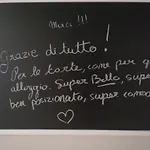 Merci !!!
Grazie di tutto!
Per le torte, come per
alloggio. Super Bello, super
ben posizionato, super